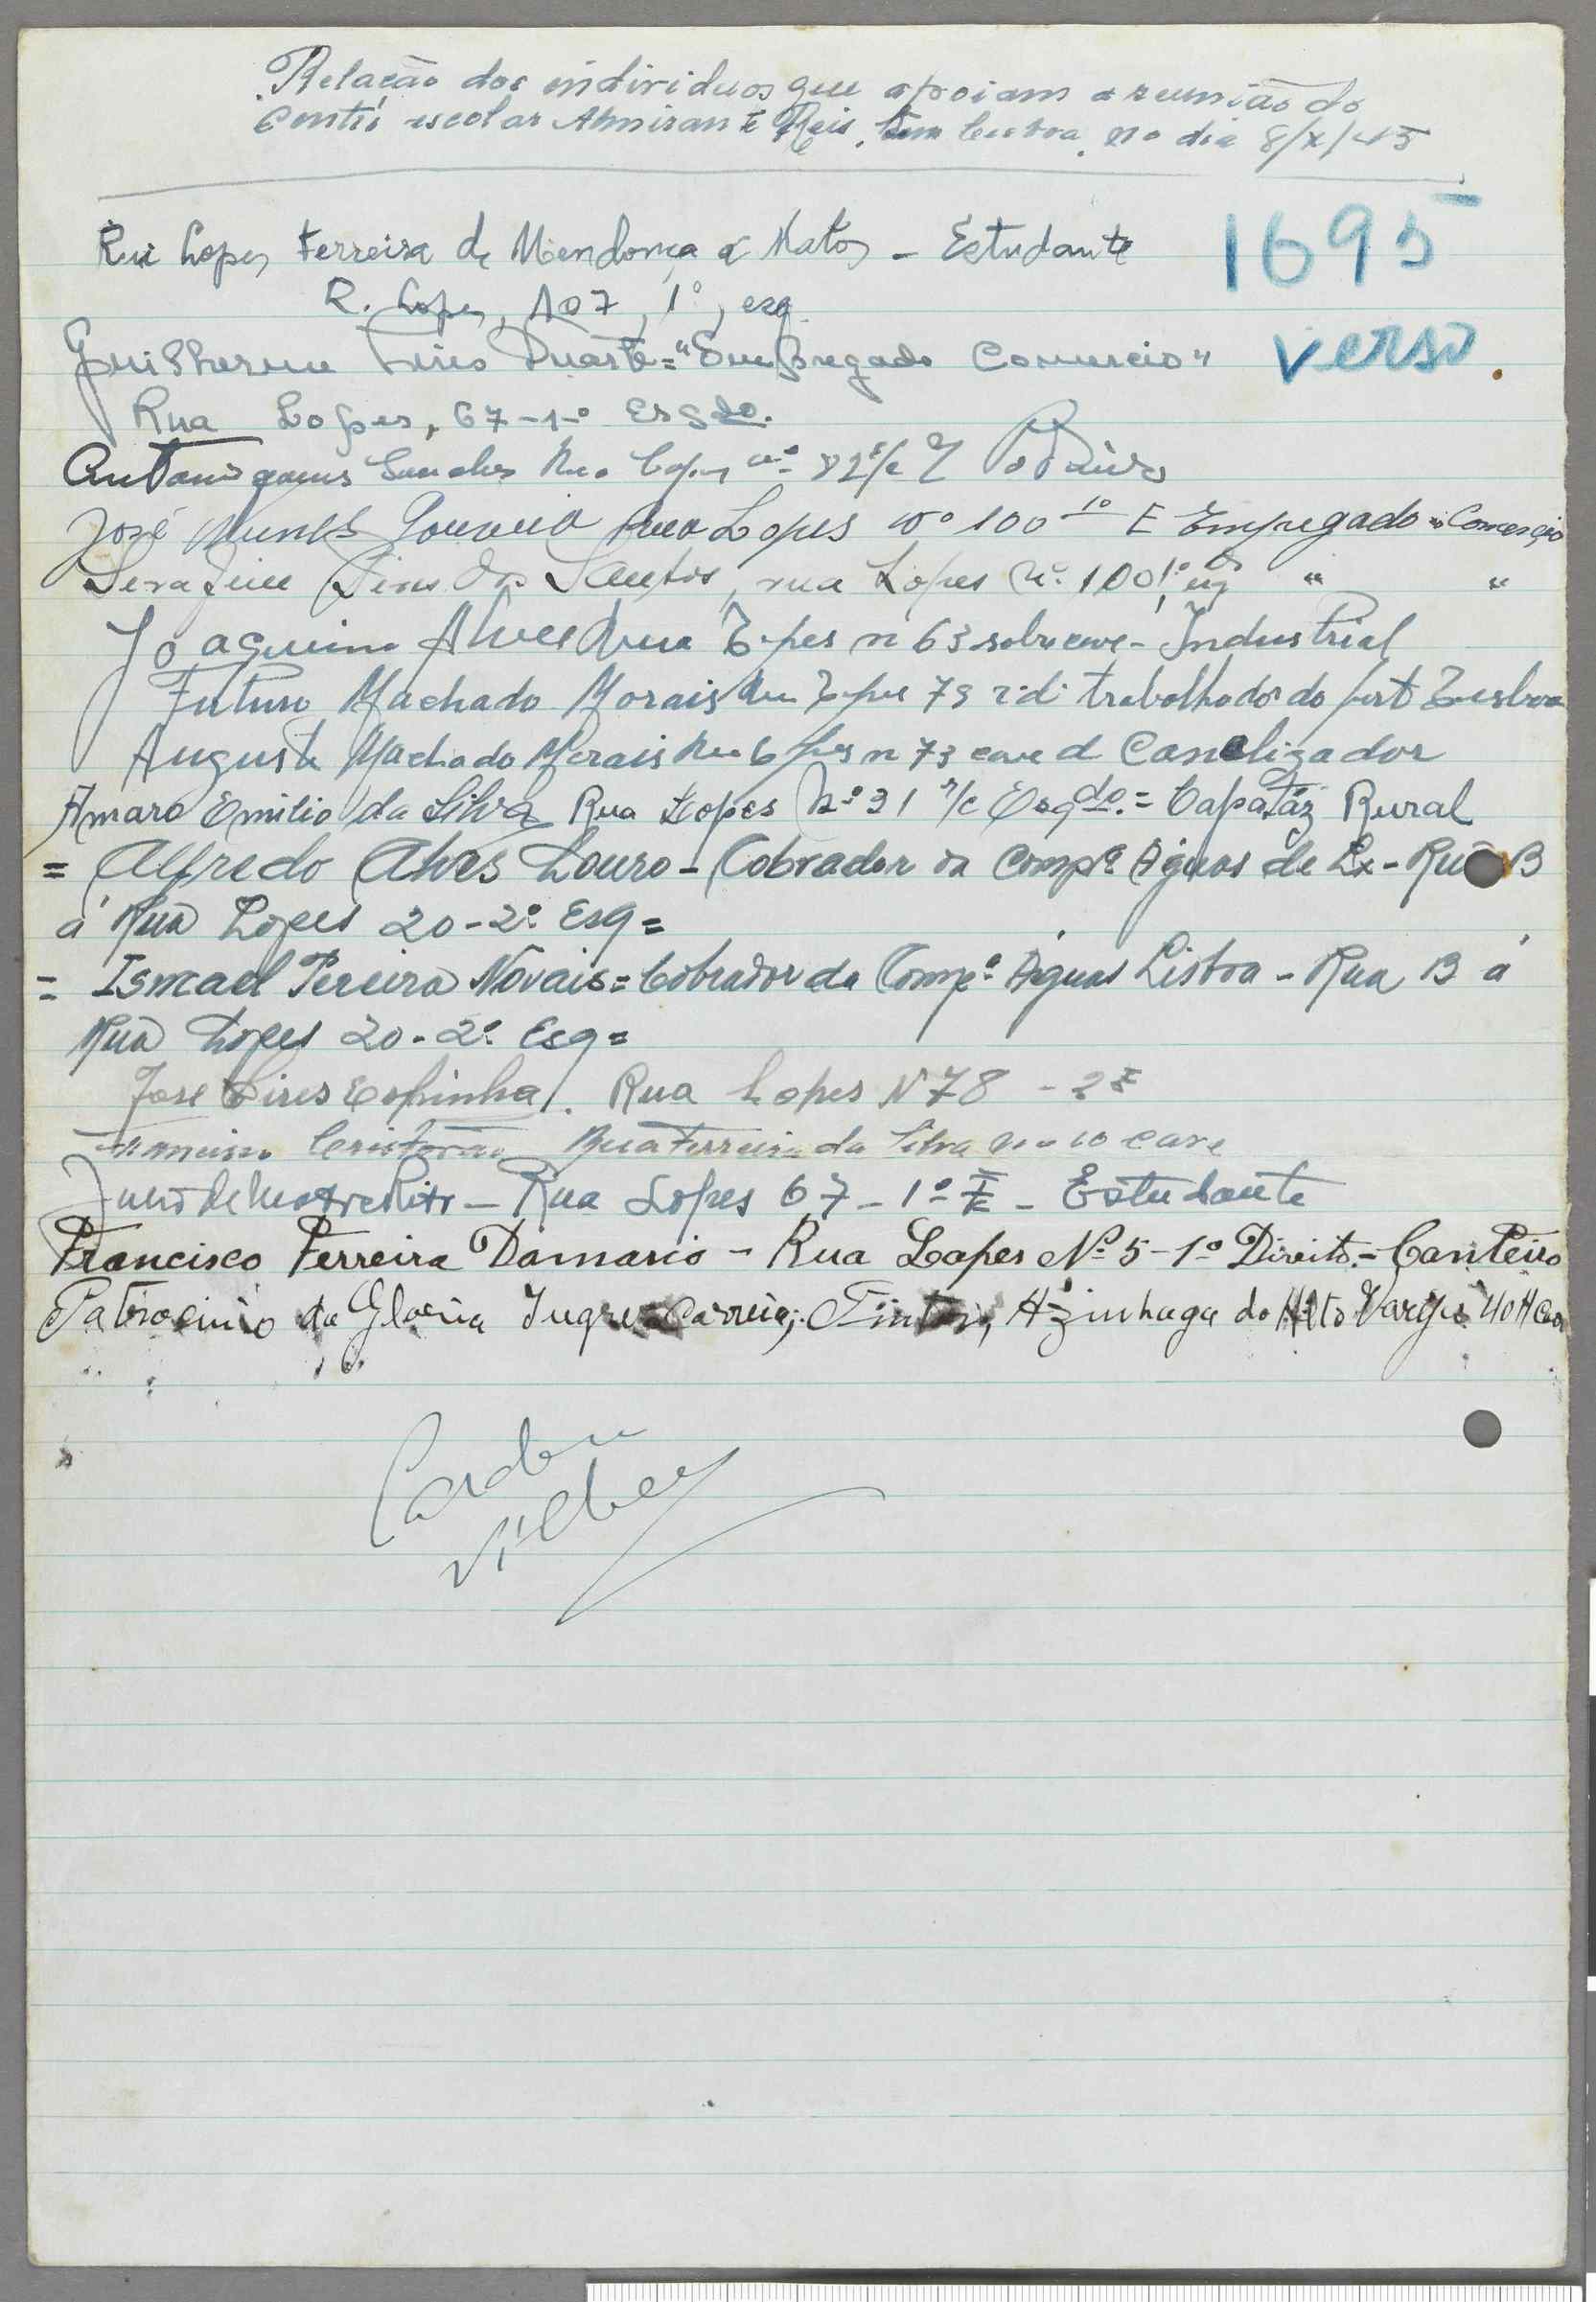 Relação dos individuos que apoiam a reunião do
Centro escolar Almirante Reis, em Lisboa, no dia 8/X/45
1695
verso
Rui Lopes Ferreira de Mendonça e Matos - Estudante
R. Lopes, 107, 1º, esq
Guilherme Pires Duarte = "Empregado Comercio"
Rua Lopes, 67-1º Esqdo.
Antonio Sanches Rua Lopes nº 82
José Nunes Gouveia Rua Lopes nº 100 1º E Empregado Comercio
Serafim Pires dos Santos, rua Lopes Nº 100, 1º esq " "
Joaquim Alves Rua Lopes n 63 sobre cave - Industrial
Futuro Machado Morais Rua Lopes 73 r d trabalhador do port Lisboa
Augusto Machado Morais Rua Lopes n 73 cave d Canalizador
Amaro Emilio da Silva Rua Lopes Nº 31 r/c Esqdo. = Capatáz Rural
= Alfredo Alves Louro - Cobrador da Compª Aguas de Lx - Rua B
á Rua Lopes 20-2º Esq =
= Ismael Pereira Novais = Cobrador da Compª Aguas Lisboa - Rua B á
Rua Lopes 20-2º Esq =
Jose Pires Espinha. Rua Lopes N 78 - 2º E
Francisco Cristovão Rua Ferreira da Silva nº 10 cave
- Rua Lopes 67 - 1º E - Estudante
Francisco Ferreira Damasio - Rua Lopes Nº 5 - 1º Direito - Canteiro
Patrocinio da Gloria Correia; Pintor, Azinhaga do Alto Varejão 40 H